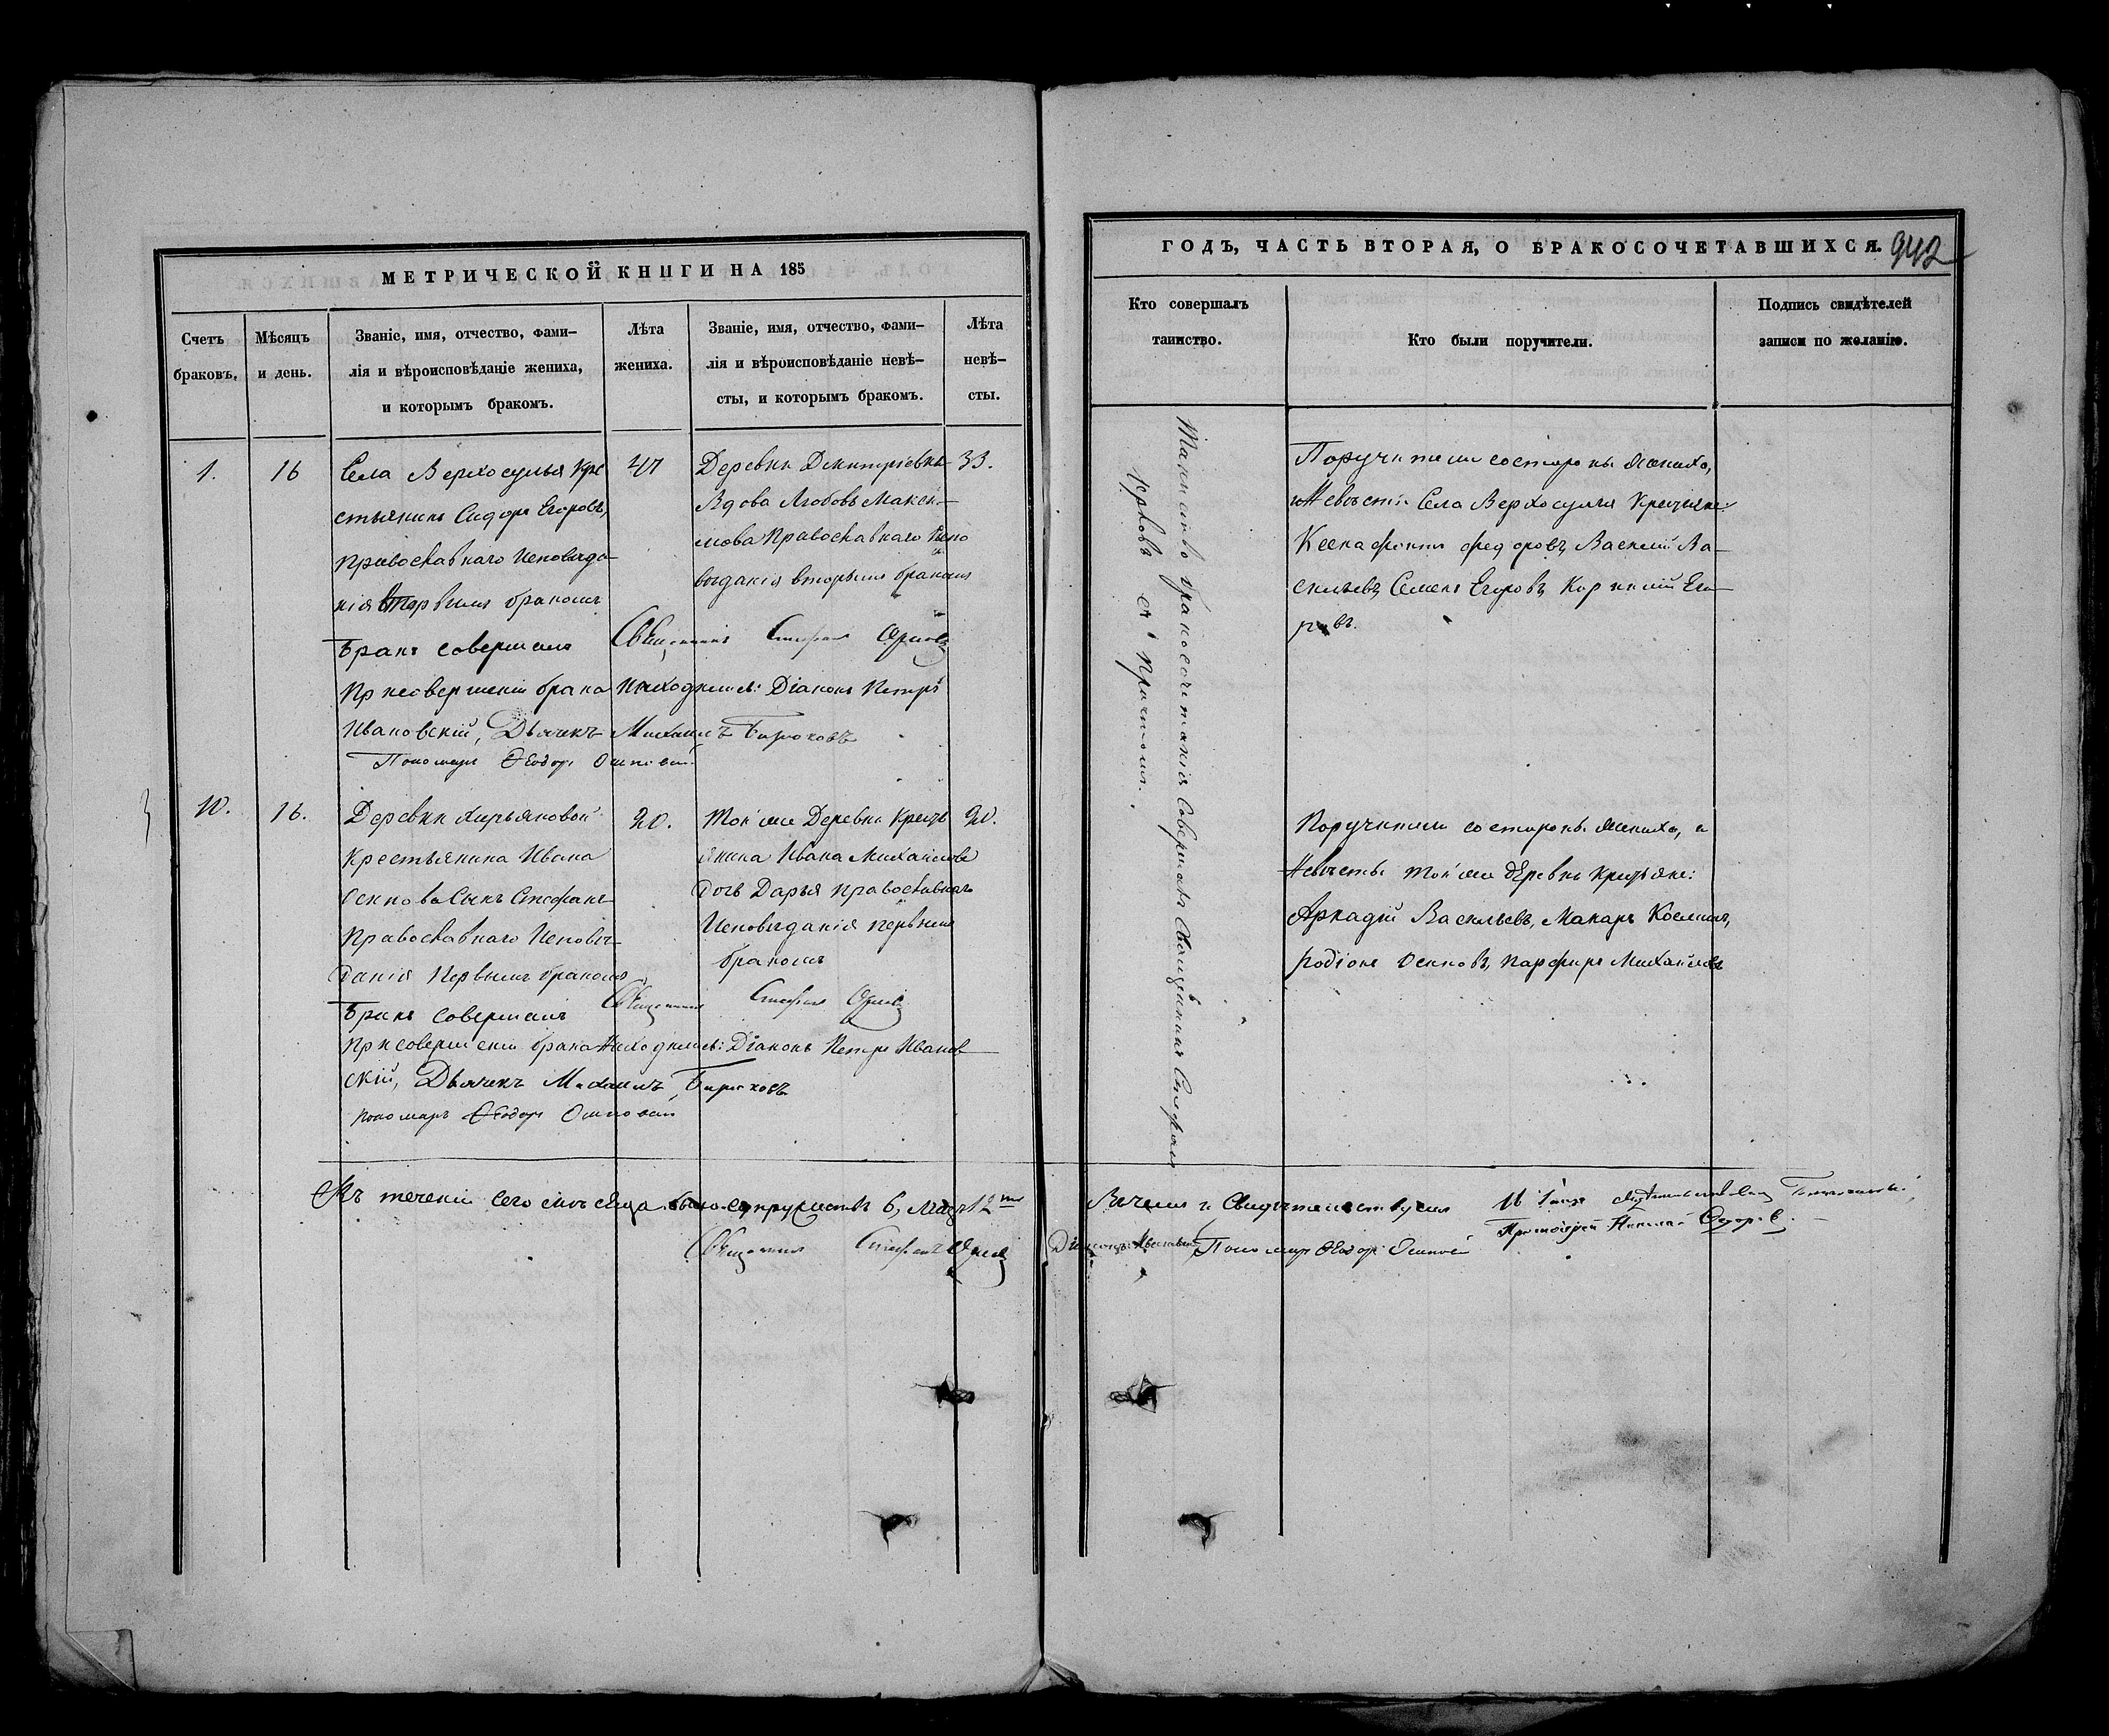 МЕТРИЧЕСКОЙ КНИГИ НА 185
Счетъ браковъ.
Мѣсяцъ и день.
Званіе, имя, отчество, фами-
лія и вѣроисповѣданіе жениха,
и которымъ бракомъ.
Лѣта
жениха.
Званіе, имя, отчество, фами-
лія и вѣроисповѣданіе невѣ-
сты, и которымъ бракомъ.
Лѣта
невѣ-
сты.
1.
16
Села Верхосулья Кре
стьянинъ Сидоръ Егоровъ,
Православнаго Исповѣда-
нія вторымъ бракомъ
47
Деревни Дмитріевки
Вдова Любовь Макси-
мова Православнаго Испо
вѣданія вторымъ бракомъ
33.
Бракъ совершалъ Священникъ Стефанъ
При совершеніи брака находились: Діаконъ Петръ
Ивановскій, Дьячекъ Михаилъ Бирюковъ
Пономарь Ѳеодоръ
10.
16.
Деревни Хирьяковой
Крестьянина Ивана
Осипова Сынъ Стефанъ
Православнаго Исповѣ-
данія Первымъ бракомъ
20.
Той же Деревни Кресть
янина Ивана Михайлова
Дочь Дарья Православнаго
Исповѣданія первымъ
бракомъ
20.
Бракъ совершалъ Священникъ Стефанъ
При совершеніи брака находились: Діаконъ Петръ Иванов
скій, Дьячекъ Михаилъ Бирюковъ
пономарь Ѳеодоръ
Въ теченіи сего мѣсяца было супружествъ 6, лицъ 12ть
Священникъ Стефанъ
ГОДЪ, ЧАСТЬ ВТОРАЯ, О БРАКОСОЧЕТАВШИХСЯ.
942
Кто совершалъ
таинство.
Кто были поручители.
Подпись свидѣтелей
записи по желанію.
Таинство бракосочетанія Совершалъ Священникъ Стефанъ
съ причтомъ.
Поручители со стороны жениха,
и Невѣсты Села Верхосулья Крестьяне:
Ксенофонтъ Федоровъ, Василій Ва-
сильевъ, Семенъ Егоровъ, Корнилій Его-
ровъ.
Поручители со стороны жениха, и
Невѣсты той же деревни крестьяне:
Аркадій Васильевъ, Макаръ Козминъ,
Родіонъ Осиповъ, Парфиръ Михайловъ
Въ чемъ и Свидѣтельствуемъ
Пономарь Ѳеодоръ
Протоіерей Николай